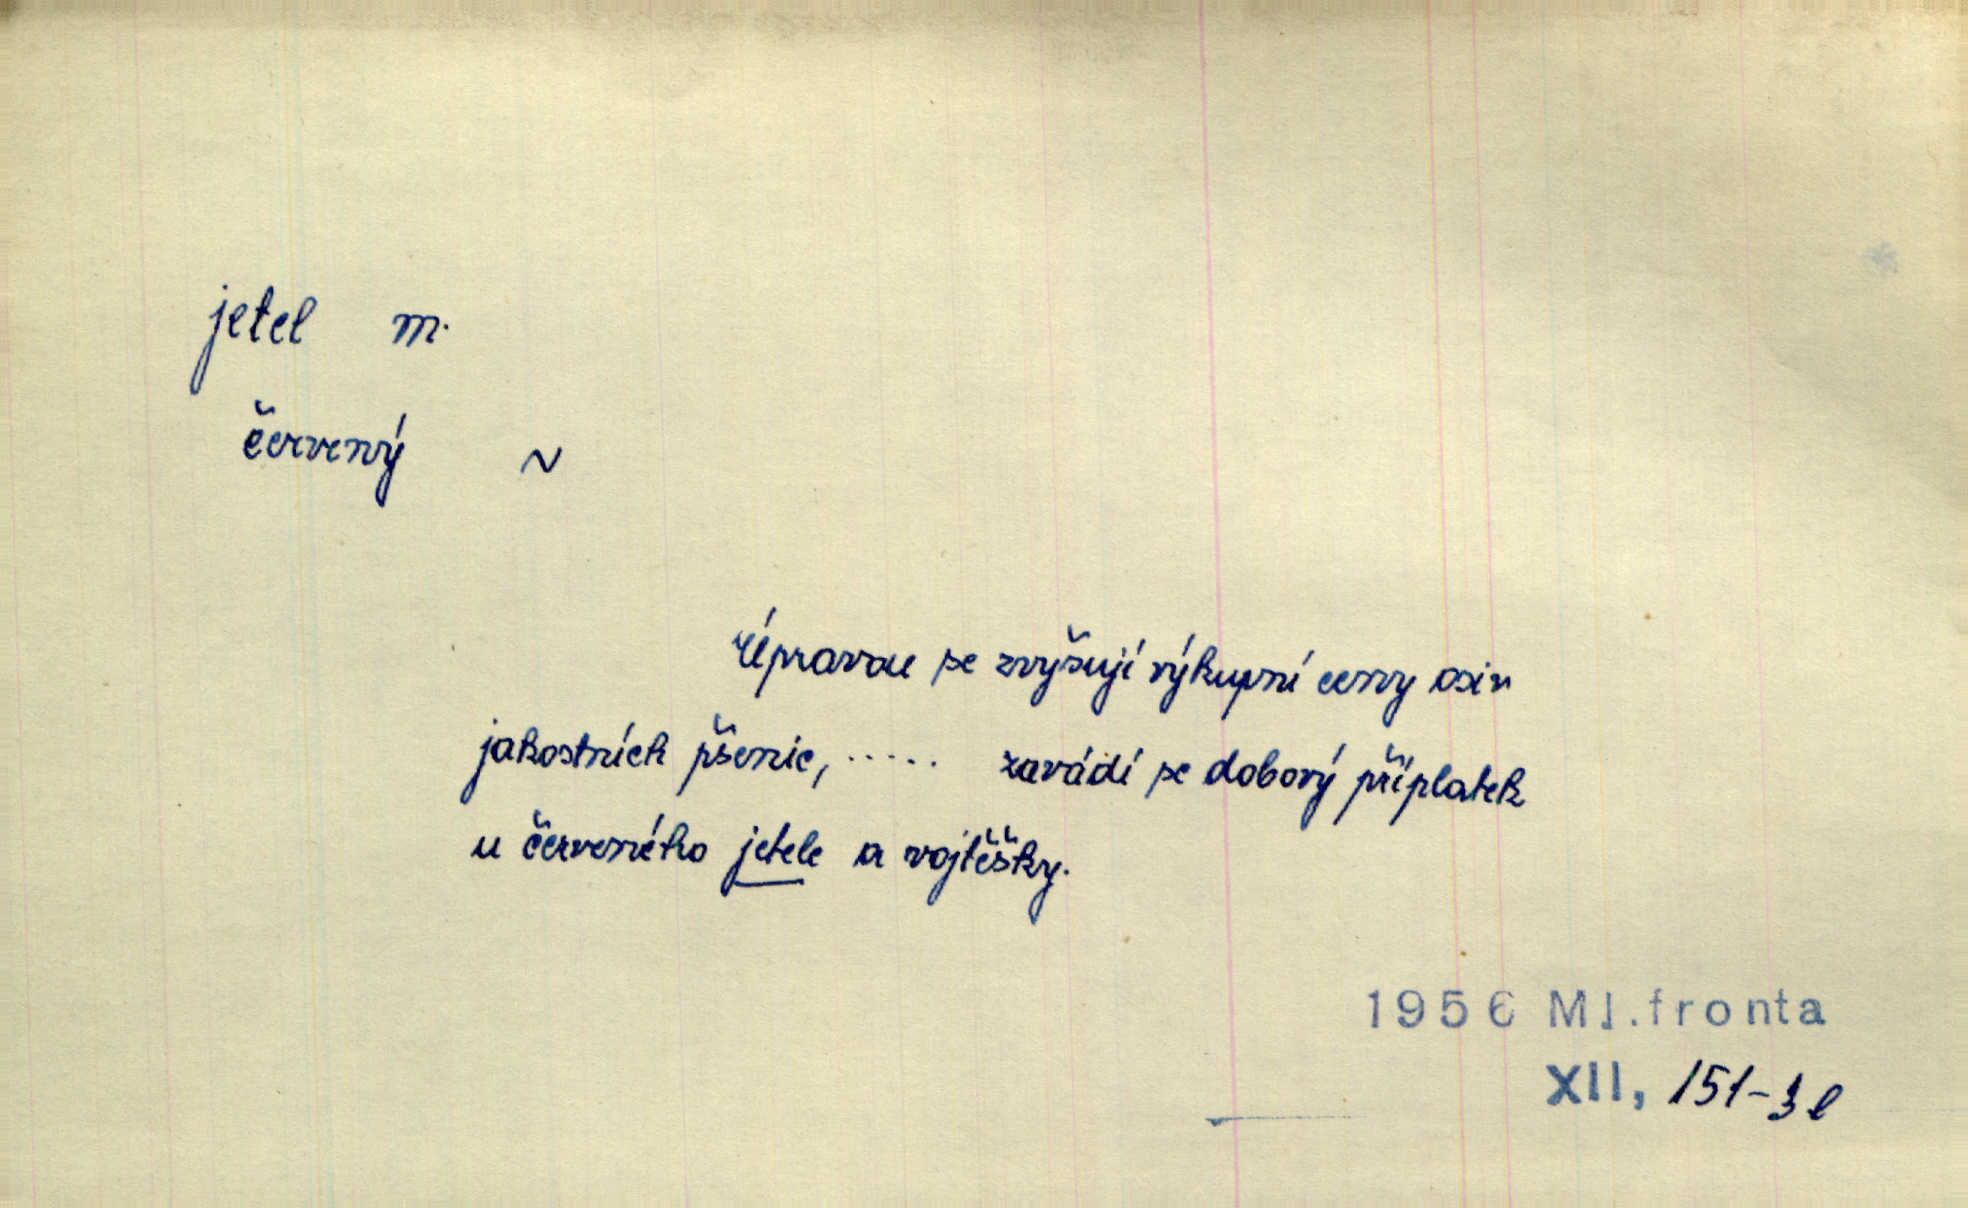 jetel m.
červený ~
Úpravou se zvyšují výkupní ceny osin
jakostních pšenic, ..... zavádí se dobový příplatek
u červeného jetele a vojtěšky.
1956 Ml.fronta
XII, 151-3